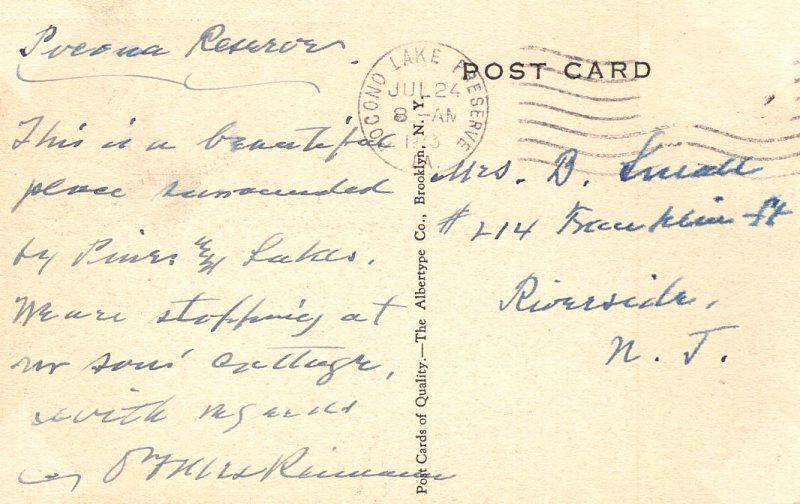 Pocono Reserve.
This is a beautiful
place surrounded
by Pines & Lakes.
We are stopping at
our sons' Cottage,
with regards
Mrs Reimann
POCONO LAKE PRESERVE
JUL 24
8 - AM
PA.
POST CARD
Mrs. B. Small
#214 Franklin St
Riverside,
N. J.
Post Cards of Quality.—The Albertype Co., Brooklyn, N. Y.